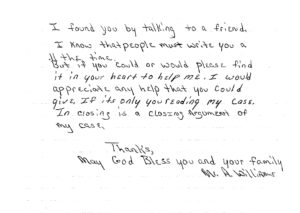 I found you by talking to a friend.
I know that people must write you a
ll the time.
But if you could or would please find
it in your heart to help me. I would
appreciate any help that you could
give. If its only you reading my case.
In closing is a closing argument of
my case.
Thanks,
May God Bless you and your family
Mr. A Williams